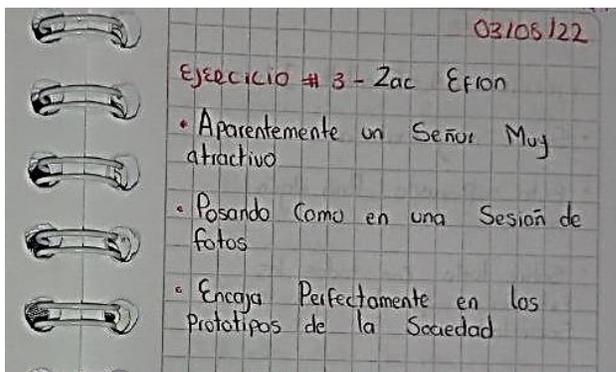 03/08/22
Ejercicio # 3 - Zac Efron
• Aparentemente un Señor Muy
atractivo
• Posando Como en una Sesión de
fotos
• Encaja Perfectamente en los
Prototipos de la Sociedad